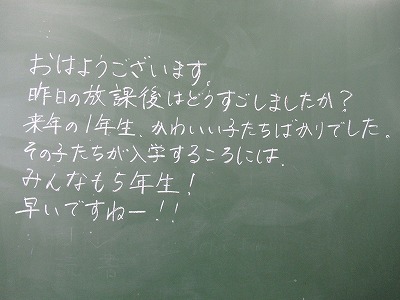 おはようございます。
昨日の放課後はどうすごしましたか？
来年の1年生、かわいい子たちばかりでした。
その子たちが入学するころには、
みんなも5年生！
早いですねー！！